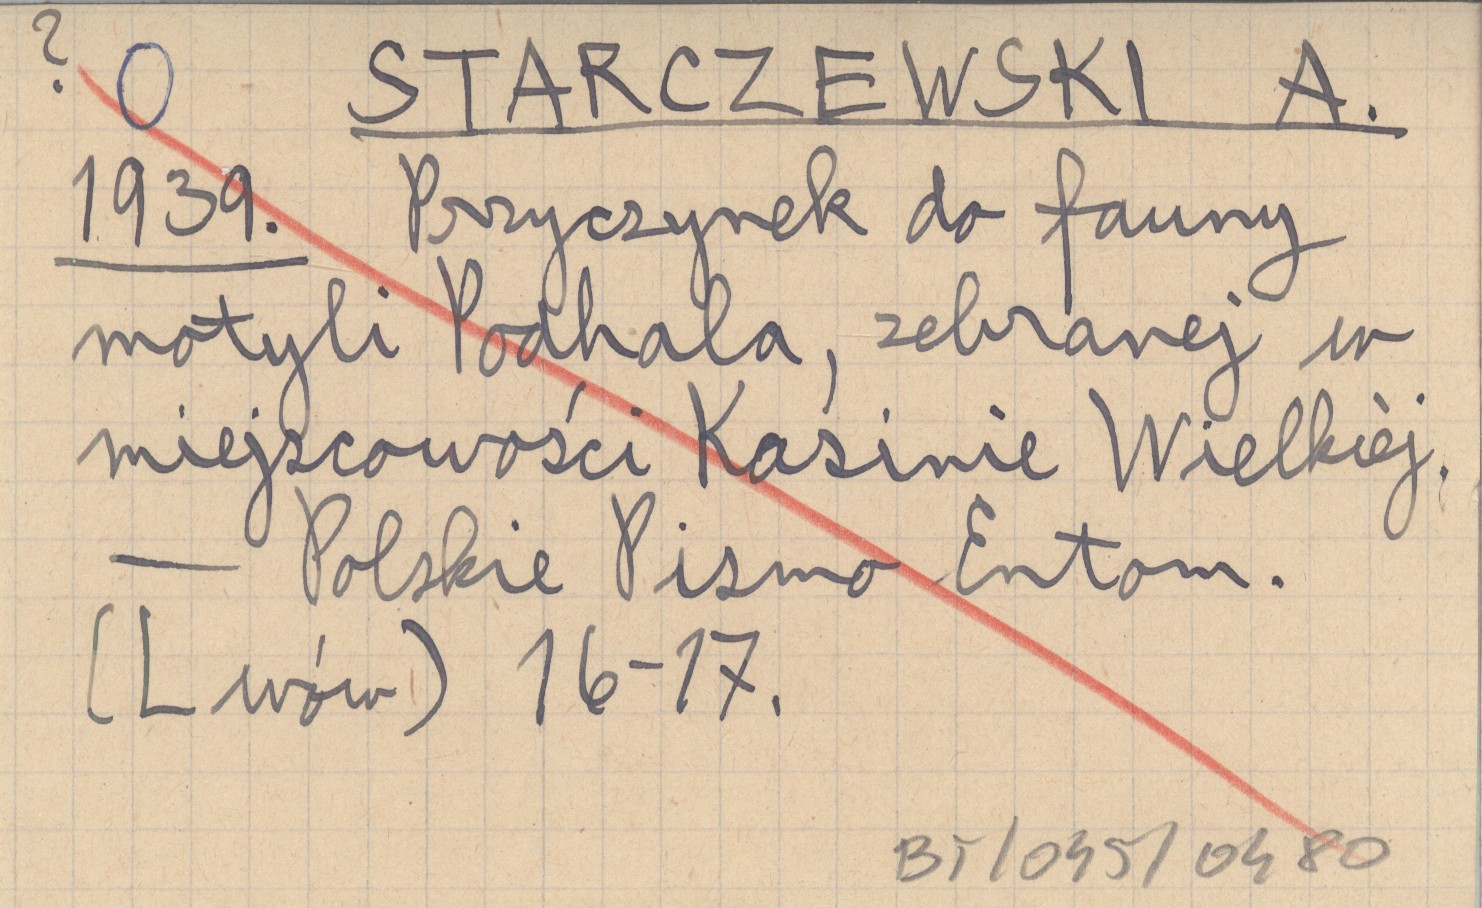 ? O STARCZEWSKI A.
1939. Przyczynek do fauny
motyli Podhala, zebranej w
miejscowości Kasinie Wielkiej.
— Polskie Pismo Entom.
(Lwów) 16-17.
BI/045/0480